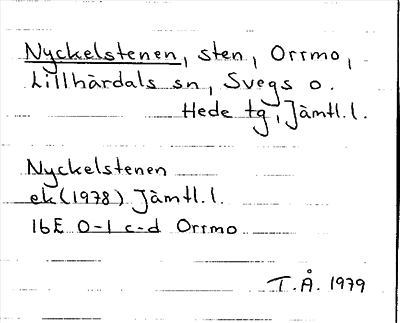 Nyckelstenen, sten, Orrmo,
Lillhärdals sn, Svegs o.
Hede tg, Jämtl. l.
Nyckelstenen
ek (1978) Jämtl. l.
16E 0-1 c-d Orrmo
T.Å. 1979